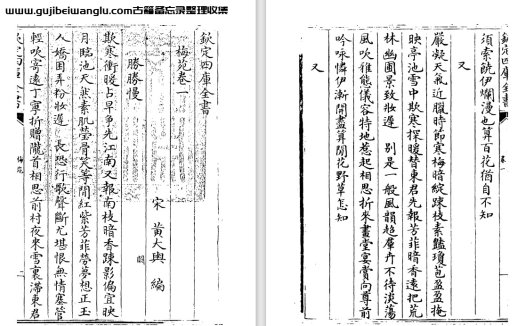 www.gujibeiwanglu.com古籍备忘录整理收集
欽定四庫全書
梅苑卷一
宋 黃大輿 編
勝勝慢
欺寒衝暖占早爭先江南又報南枝暗香踈影偏宜映
月臨池天然素肌瑩骨笑等閒紅紫芳菲勞夢想正玉
人嬌困弄粉妝遲 長恐行歌聲斷尤堪恨無情塞管
輕吹寄遠丁寧折贈隴首相思前村夜來雪裏滯東君
欽定四庫全書 梅苑
欽定四庫全書 卷一
須索饒伊爛漫也算百花猶自不知
又
嚴凝天氣近臘時節寒梅暗綻踈枝素豔瓊苞盈盈掩
映亭池雪中欺寒探暖替東君先報芳菲暗香遠把荒
林幽圃景致妝遲 別是一般風韻超羣卉不待淡蕩
風吹雅態儀容特地惹起相思折來畫堂宴賞向尊前
吟咏憐伊漸開盡算閒花野草怎知
又